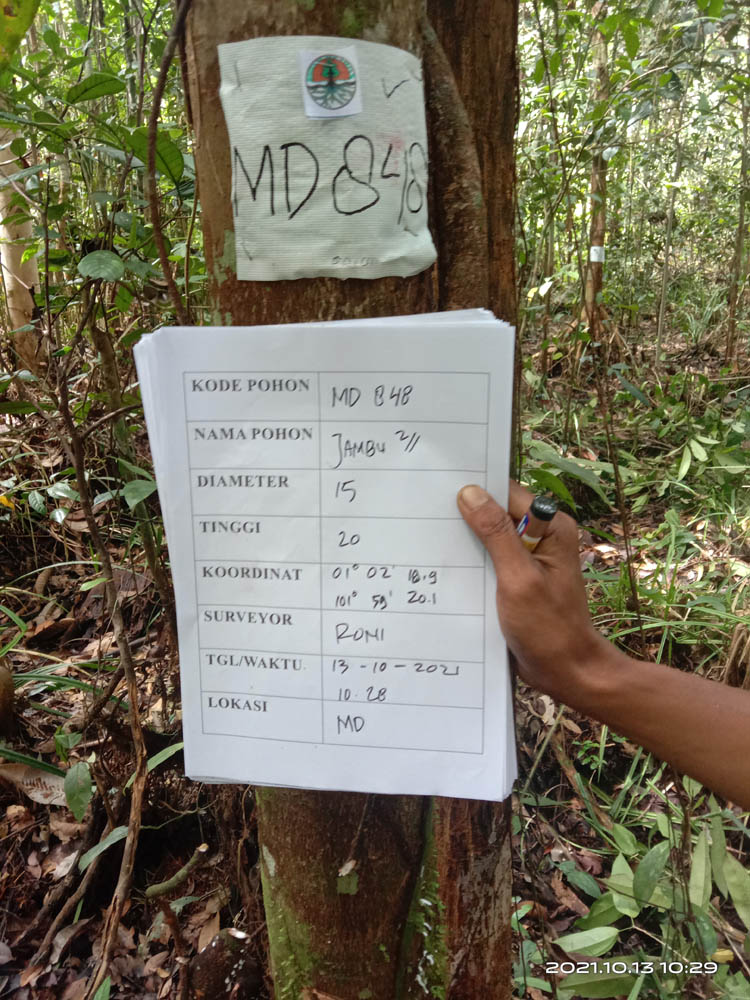 MD 848
KODE POHON MD 848
NAMA POHON JAMBU 2//
DIAMETER 15
TINGGI 20
KOORDINAT 01° 02' 18.9
101° 59' 20.1
SURVEYOR ROMI
TGL/WAKTU. 13-10-2021
10.28
LOKASI MD
2021.10.13 10:29